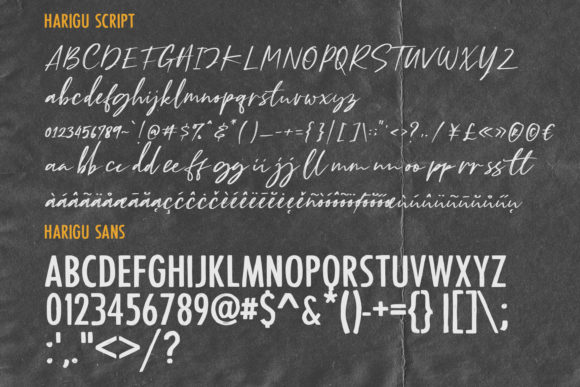 HARIGU SCRIPT
ABCDEFGHIJKLMNOPQRSTUVWXYZ
abcdefghijklmnopqrstuvwxyz
0123456789~`!@#$%^&*()_-+={}|[]\:;"'<>?,./¥£«»®©€
aa bb cc dd ee ff gg ii jj ll mm nn oo pp rr ss tt
HARIGU SANS
ABCDEFGHIJKLMNOPQRSTUVWXYZ
0123456789@#$^&*()-+={}|[]\;
:',."<>/?